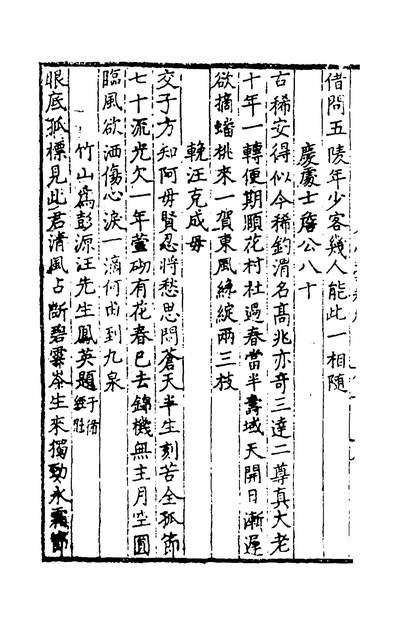 借問五陵年少客幾人能此一相隨
慶處士詹公八十
古稀安得似今稀釣渭名高兆亦奇三達二尊真大老
十年一轉便期頤花村杜過春當半壽域天開日漸遲
欲摘蟠桃來一賀東風綠綻兩三枝
輓汪克成母
交子方知阿母賢忍將愁思問蒼天半生刻苦全孤節
七十流光欠一年萱砌有花春已去錦機無主月空圓
臨風欲洒傷心淚一滴何由到九泉
竹山為彭源汪先生鳳英題
眼底孤標見此君清風占斷碧雲岑生來獨勁氷霜節